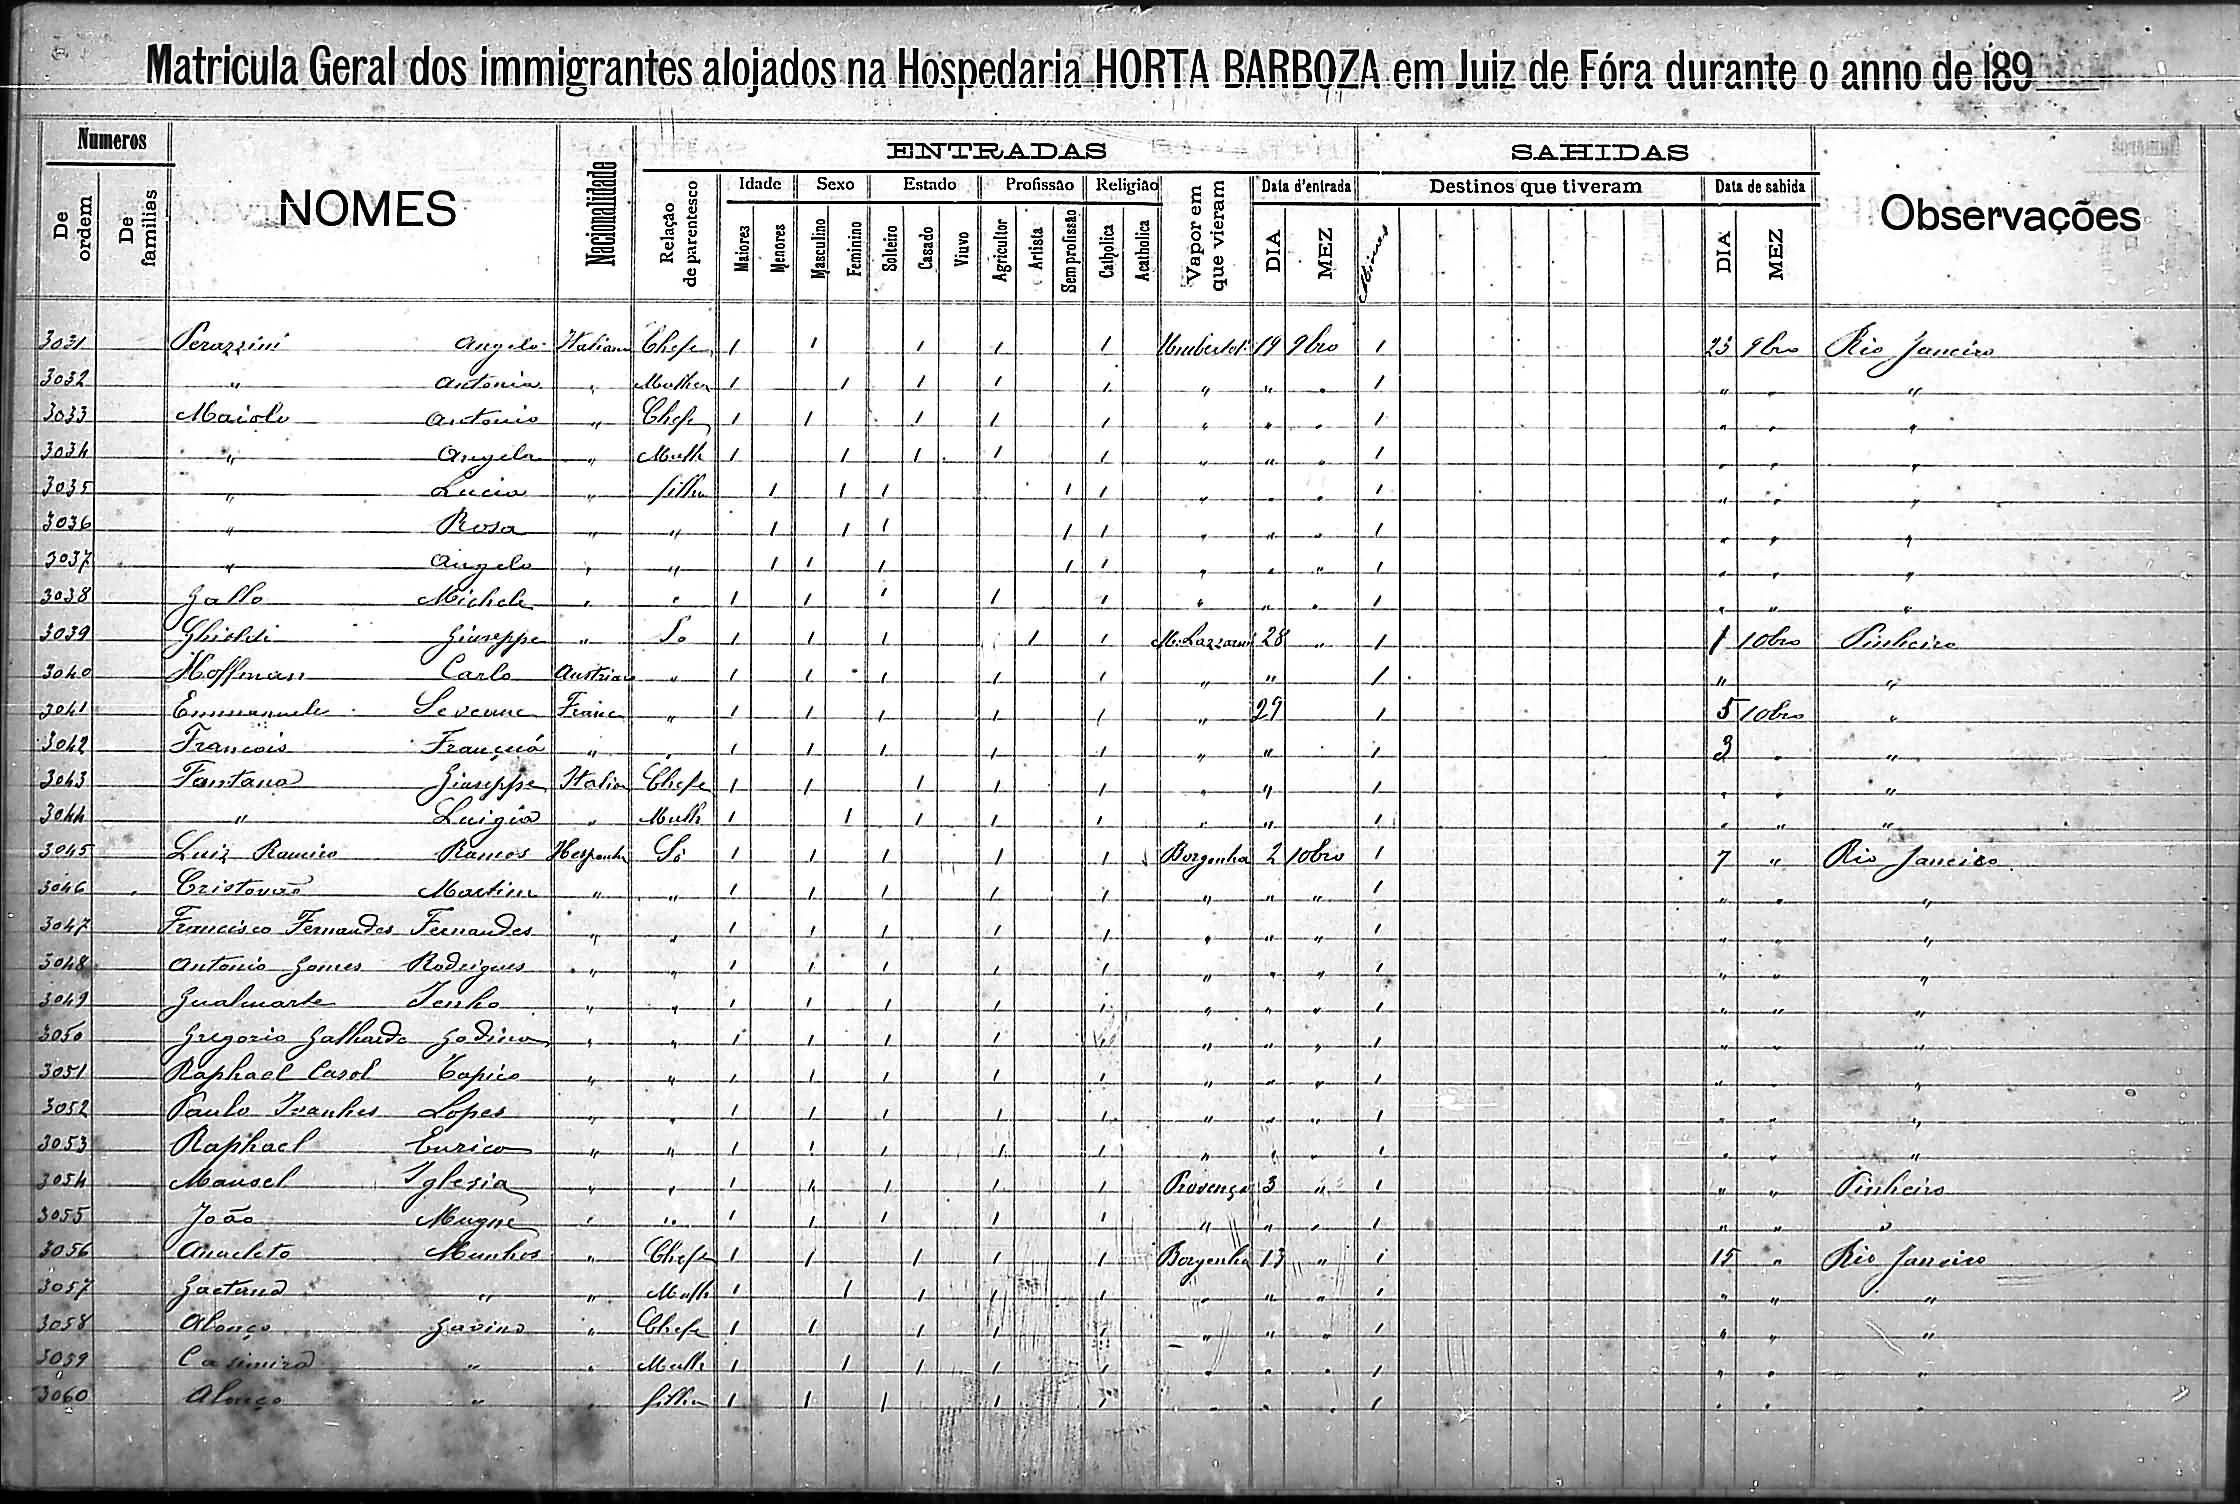 Matricula Geral dos immigrantes alojados na Hospedaria HORTA BARBOZA em Juiz de Fóra durante o anno de 189
Numeros
De ordem
De familias
NOMES
Nacionalidade
ENTRADAS
Relação de parentesco
Idade
Maiores
Menores
Sexo
Masculino
Feminino
Estado
Solteiro
Casado
Viuvo
Profissão
Agricultor
Artista
Sem profissão
Religião
Catholica
Acatholica
Vapor em que vieram
Data d'entrada
DIA
MEZ
SAHIDAS
Destinos que tiveram
Minas
Data de sahida
DIA
MEZ
Observações
3031 Perazzini Angelo Italiano Chefe 1 1 1 1 1 Umberto 1º 19 9bro 1 23 9bro Rio Janeiro
3032 " Antonia " Mulher 1 1 1 1 1 " " " 1 " " "
3033 Maiolo Antonio " Chefe 1 1 1 1 1 " " " 1 " " "
3034 " Angela " Mulh 1 1 1 1 1 " " " 1 " " "
3035 " Lucia " filha 1 1 1 1 1 " " " 1 " " "
3036 " Rosa " " 1 1 1 1 1 " " " 1 " " "
3037 " Angelo " " 1 1 1 1 1 " " " 1 " " "
3038 Gallo Michele " " 1 1 1 1 1 " " " 1 " " "
3039 Ghioldi Giuseppe " So 1 1 1 1 1 28 " 1 1 10bro Pinheiro
3040 Hoffman Carlo Austriac " 1 1 1 1 1 " " 1 " "
3041 Emmanuele Franc " 1 1 1 1 1 " 29 1 5 10bro "
3042 Francois " " 1 1 1 1 1 " " 1 3 " "
3043 Fantana Giuseppe Italian Chefe 1 1 1 1 1 " " 1 " " "
3044 " Luigia " Mulh 1 1 1 1 1 " " 1 " " "
3045 Luiz Ramiro Ramos Hespanh Só 1 1 1 1 1 Borgonha 2 10bro 1 7 " Rio Janeiro
3046 Cristovão Martim " " 1 1 1 1 1 " " " 1 " " "
3047 Francisco Fernandes Fernandes " " 1 1 1 1 1 " " " 1 " " "
3048 Antonio Gomes Rodrigues " " 1 1 1 1 1 " " " 1 " " "
3049 " " 1 1 1 1 1 " " " 1 " " "
3050 Gregorio Galhardo Godino " " 1 1 1 1 1 " " " 1 " " "
3051 Raphael Casol " " 1 1 1 1 1 " " " 1 " " "
3052 Paulo Lopes " " 1 1 1 1 1 " " " 1 " " "
3053 Raphael Eurico " " 1 1 1 1 1 " " " 1 " " "
3054 Manoel Iglesia " " 1 1 1 1 1 Provença 3 " 1 " " Pinheiro
3055 João " " 1 1 1 1 1 " " " 1 " " "
3056 Anacleto Munhos " Chefe 1 1 1 1 1 Borgonha 13 " 1 15 " Rio Janeiro
3057 Gaetana " " Mulh 1 1 1 1 1 " " " 1 " " "
3058 Alonço Gavino " Chefe 1 1 1 1 1 " " " 1 " " "
3059 Casimira " " Mulh 1 1 1 1 1 " " " 1 " " "
3060 Alonço " " filho 1 1 1 1 1 " " " 1 " " "